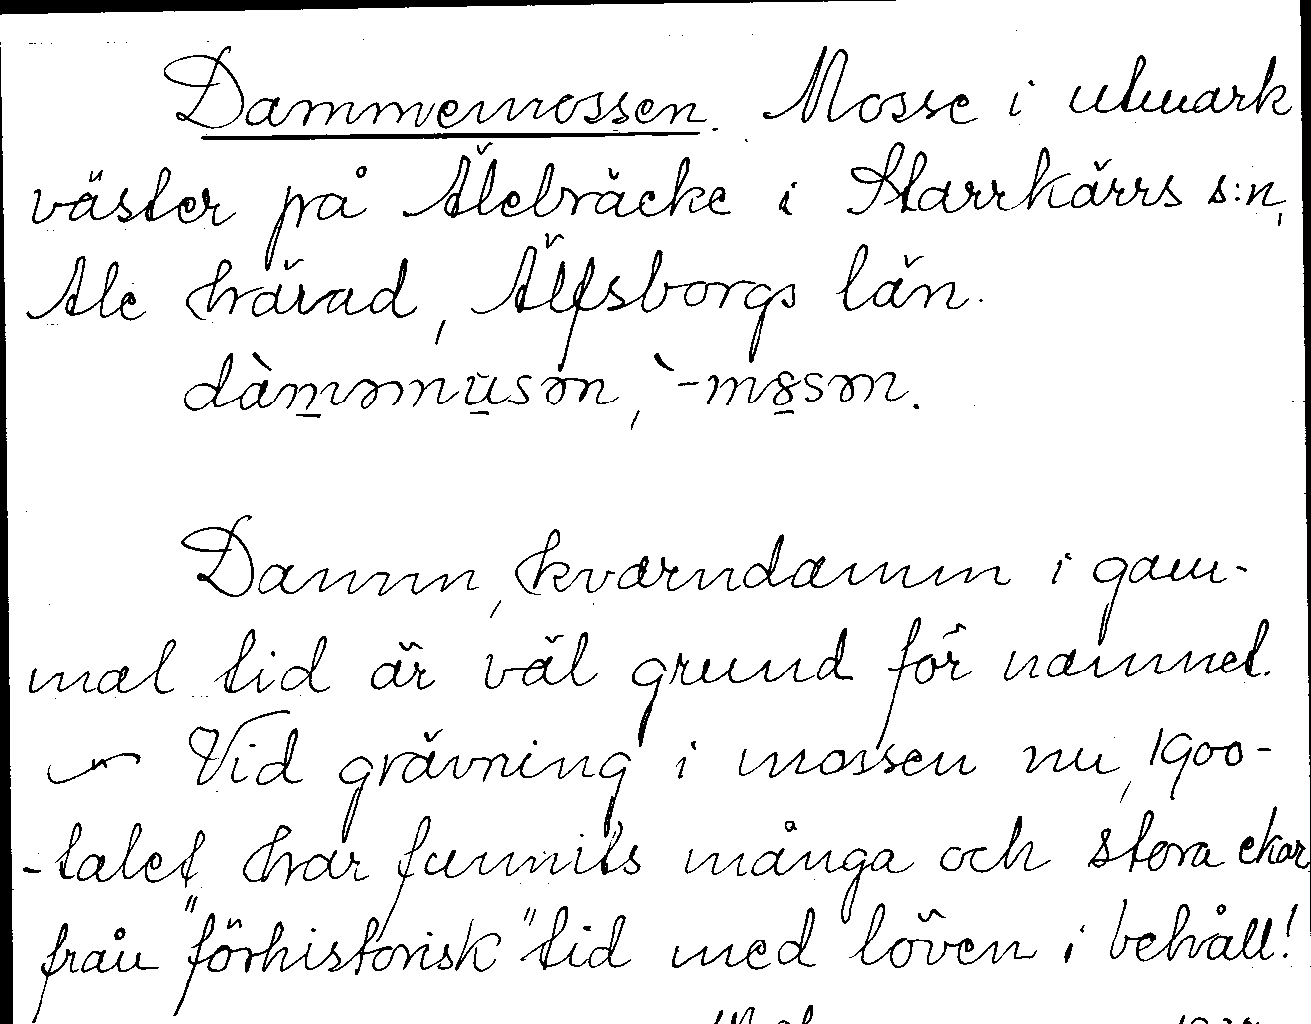 Dammemossen. Mosse i utmark
väster på Älebräcke i Starrkärrs s:n,
Ale härad, Älfsborgs län.
dàm̲əmu̲sən, `-m8̲sən.
Damm, kvarndamm i gam-
mal tid är väl grund för namnet.
~ Vid grävning i mossen nu, 1900-
-talet har funnits många och stora ekar
från "förhistorisk" tid med löven i behåll!